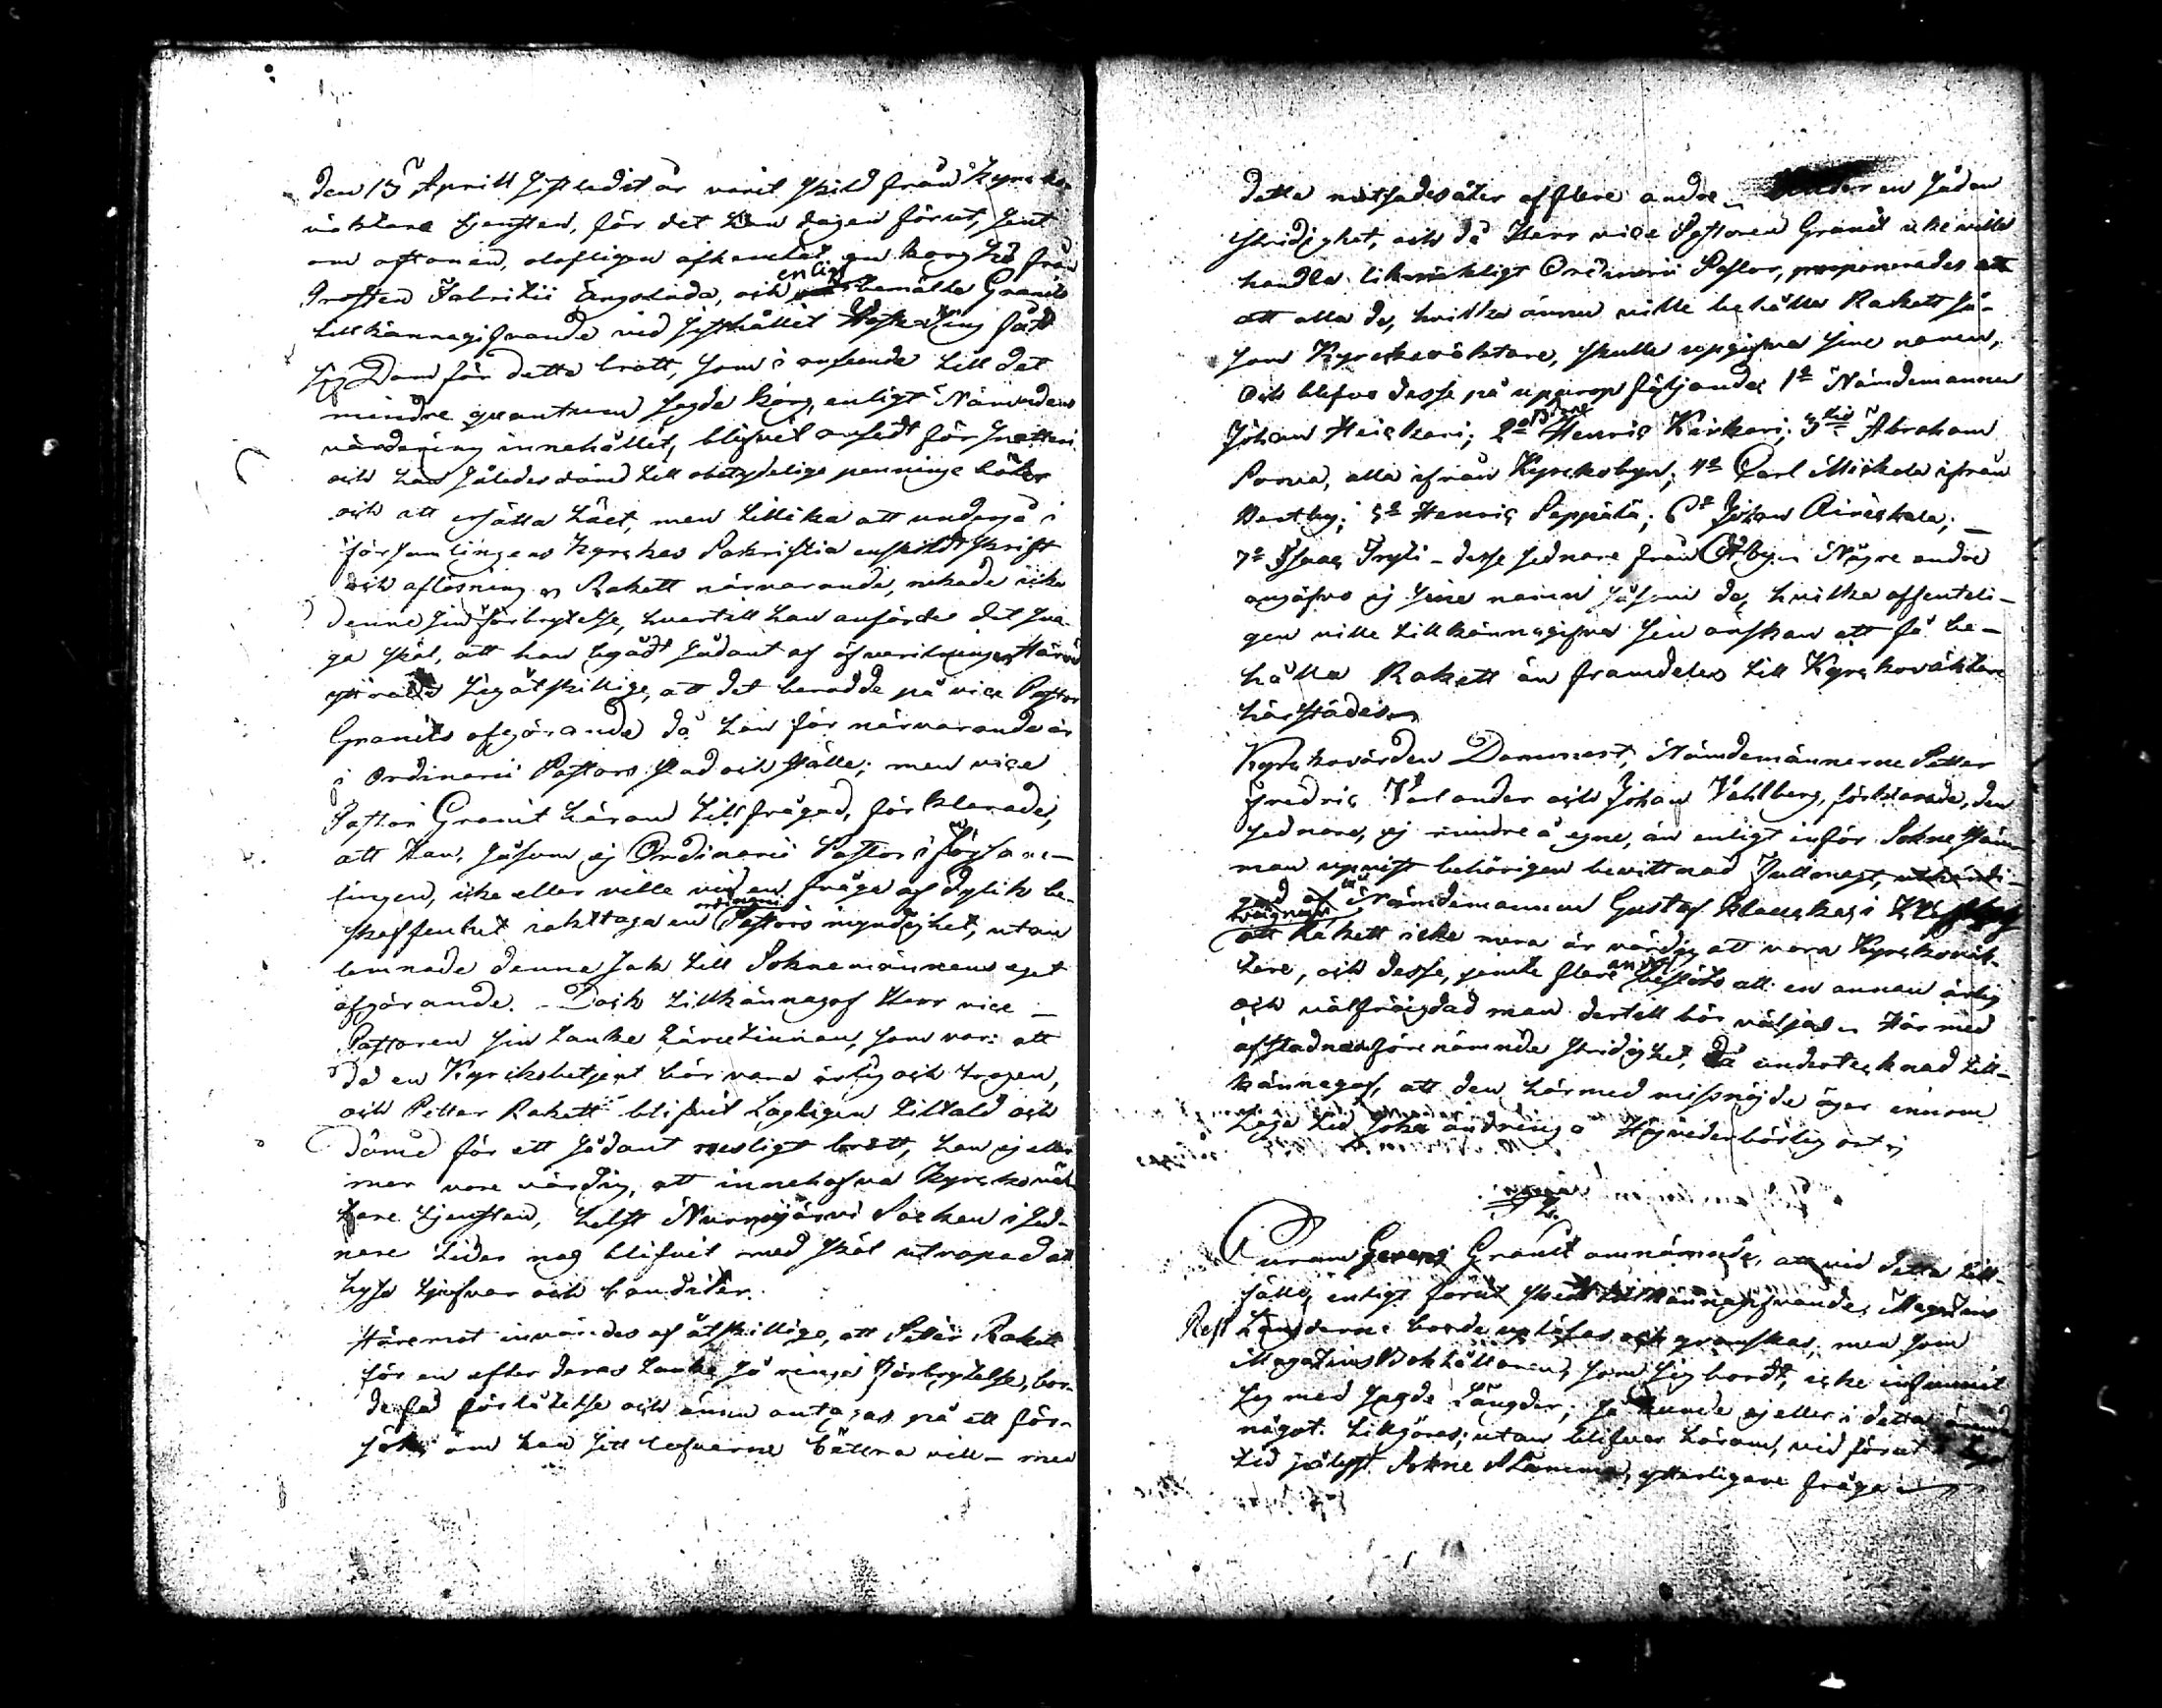 den 15 Aprill sistledit år varit skild från Kyrcko-
väktare tjensten, för det han dagen förut, sent
om aftonen, olofligen afhemtat en korg hö från
Prosten Fabritii ängslada, och enligt bemälte Granits
tillkännagifvande vid sisthållet Höste Ting fått
sig Dom för detta brott, som i anseende till det
mindre quantum sagde korg, enligt Nämndens
värdering innehållet, blifvit ansedt för snatteri
och han således dömd till obetydelige penninge böter
och att ersätta höet, men tillika att undergå i
församlingens Kyrckas Sakristia enskildt skrift
och aflösning Rakett närvarande, nekade icke
denne sin förbrytelse, hvartill han anförde det sva-
ga skäl, att han begådt sådant af öfverilning Härvid
yttrade sig åtskillige, att det berodde på vice Pastor
Granits afgörande då han för närvarande är
i Ordinarii Pastors stad och ställe; men vice
Pastor Granit härom tillfrågad, förklarade,
att Han, såsom ej Ordinarii Pastor i försam-
lingen, icke eller ville vid en fråga af dylik be-
skaffenhet iakttaga en ordinarii Pastors myndighet, utan
lemnade denne sak till Sokнemännens eget
afgörande. Dock tillkännagaf Herr vice
Pastoren sin tanke härutinnan, som var: att
då en Kyrckobetjent bör vara ärlig och trogen,
och Petter Rakett blifvit Lagligen tilltald och
dömd för ett sådant nesligt brott, han ej eller
mer vore värdig, att innehafva Kyrckoväk-
tare tjensten, helst Nurmijärvi Socken i sed-
nare tider nog blifvit med skäl utropad att
hysa tjufvar och banditer.
Häremot invändes af åtskillige, att Petter Rakett
för en efter deras tanke så ringa förbrytelse, bor-
de få förlåtelse och ännu antagas på ett för-
sök, om han sitt lefverne bättra vill – men
detta motsades åter af flere andre Under en sådan
stridighet, och då Herr vice Pastoren Granit icke ville
handla likmäktigt Ordinarii Pastor, proponerades
att alla de, hvilka ännu ville behålla Rakett så-
som Kyrckoväktare, skulle upgifva sine namn,
Och blefvo desse på uprop följande: 1º Nämdemannen
Johan Heickari; 2º Henric Kirkari; 3tio Abraham
Porvia, alla ifrån Kyrckobyn; 4º Carl Mickola ifrån
; 5º Henric Seppälä; 6º Johan Airickala;
7º Isaac – desse sednare från Någre andre
angåfvo ej sine namn såsom de, hvilka offenteli-
gen ville tillkännagifva sin önskan att få be-
hålla Rakett än framdeles till Kyrckoväktare
härstädes
Kyrckovärden Dammert, Nämdemännerne Petter
Fredric Varlander och Johan Vahlberg, förklarade, den
sednare, ej mindre å egne, än enligt inför Sokнestäm-
man upvist behörigen bevittnad fullmagt,
Nämdemannen Gustaf
att Rakett icke mera är värdig att vara Kyrckoväk-
tare, och desse, jemte flere andre att en annan ärlig
och välfräigdad man dertill bör väljas Härmed
afstadnade förenämnde stridighet, då undertecknad till-
kännagaf, att den härmed missnöjde äger innom
Laga tid söka ändring å Högvederbörlig ort
Curam Gerens Granit omnämnde, att vid detta till-
fälle, enligt förut skedt tillkännagifvande, Magazins
Rest Längderne borde upläsas och granskas, men som
Magazins Bokhållaren, som sig bordt, icke infunnit
sig med sagde Längder; så kunde ej eller i detta ärende
något tillgöras; utan blifver härom, vid förut
tid pålyst Sokne Stämma, ytterligare fråga